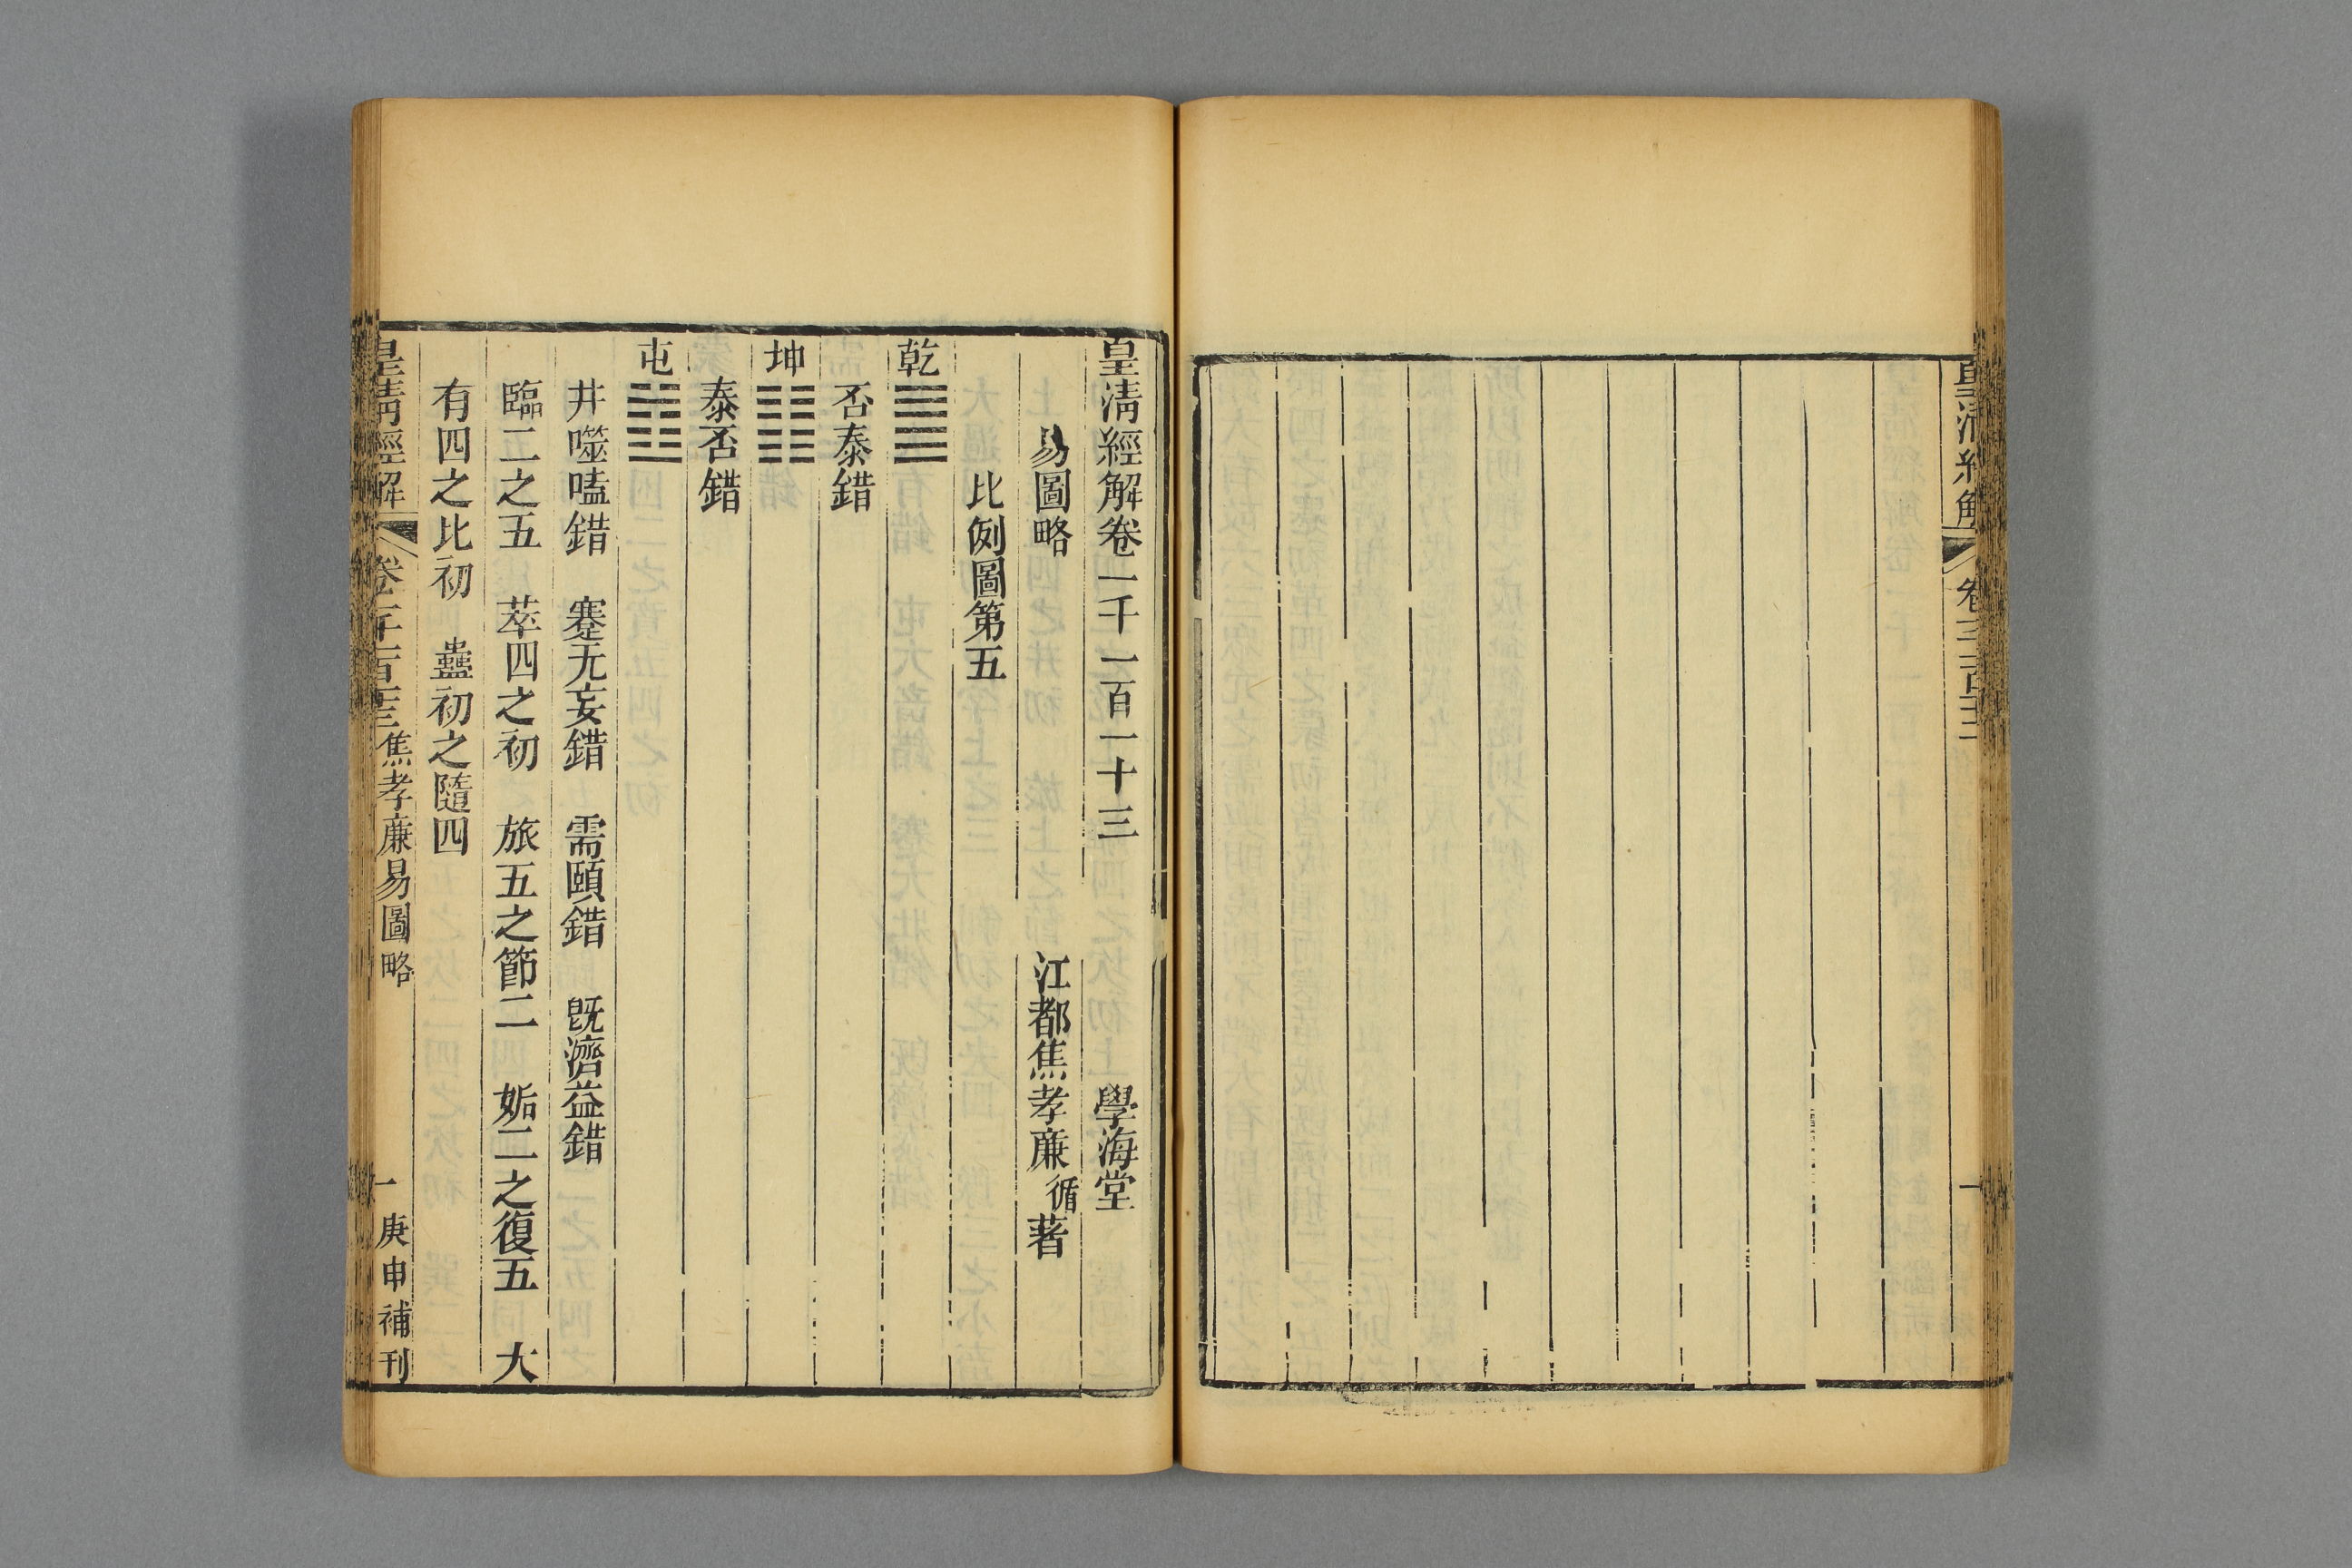 皇清經解
皇清經解卷一千一百一十三 學海堂
易圖略 江都焦孝廉循著
比例圖第五
乾䷀
否泰錯
坤䷁
泰否錯
屯䷂
井噬嗑錯 蹇无妄錯 需頤錯 旣濟益錯
臨二之五 萃四之初 旅五之節二 姤二之復五 大
有四之比初 蠱初之隨四
皇清經解 卷一千一百十三 焦孝廉易圖略 一 庚申補刊